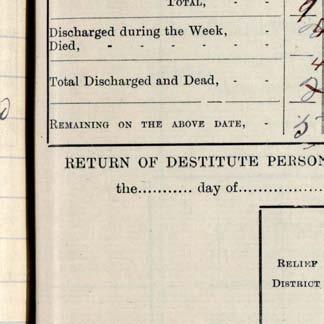 TOTAL, - -
Discharged during the Week, -
Died, - - - - - -
Total Discharged and Dead, - -
REMAINING ON THE ABOVE DATE, -
RETURN OF DESTITUTE PERSON
the........... day of.................
RELIEF
DISTRICT